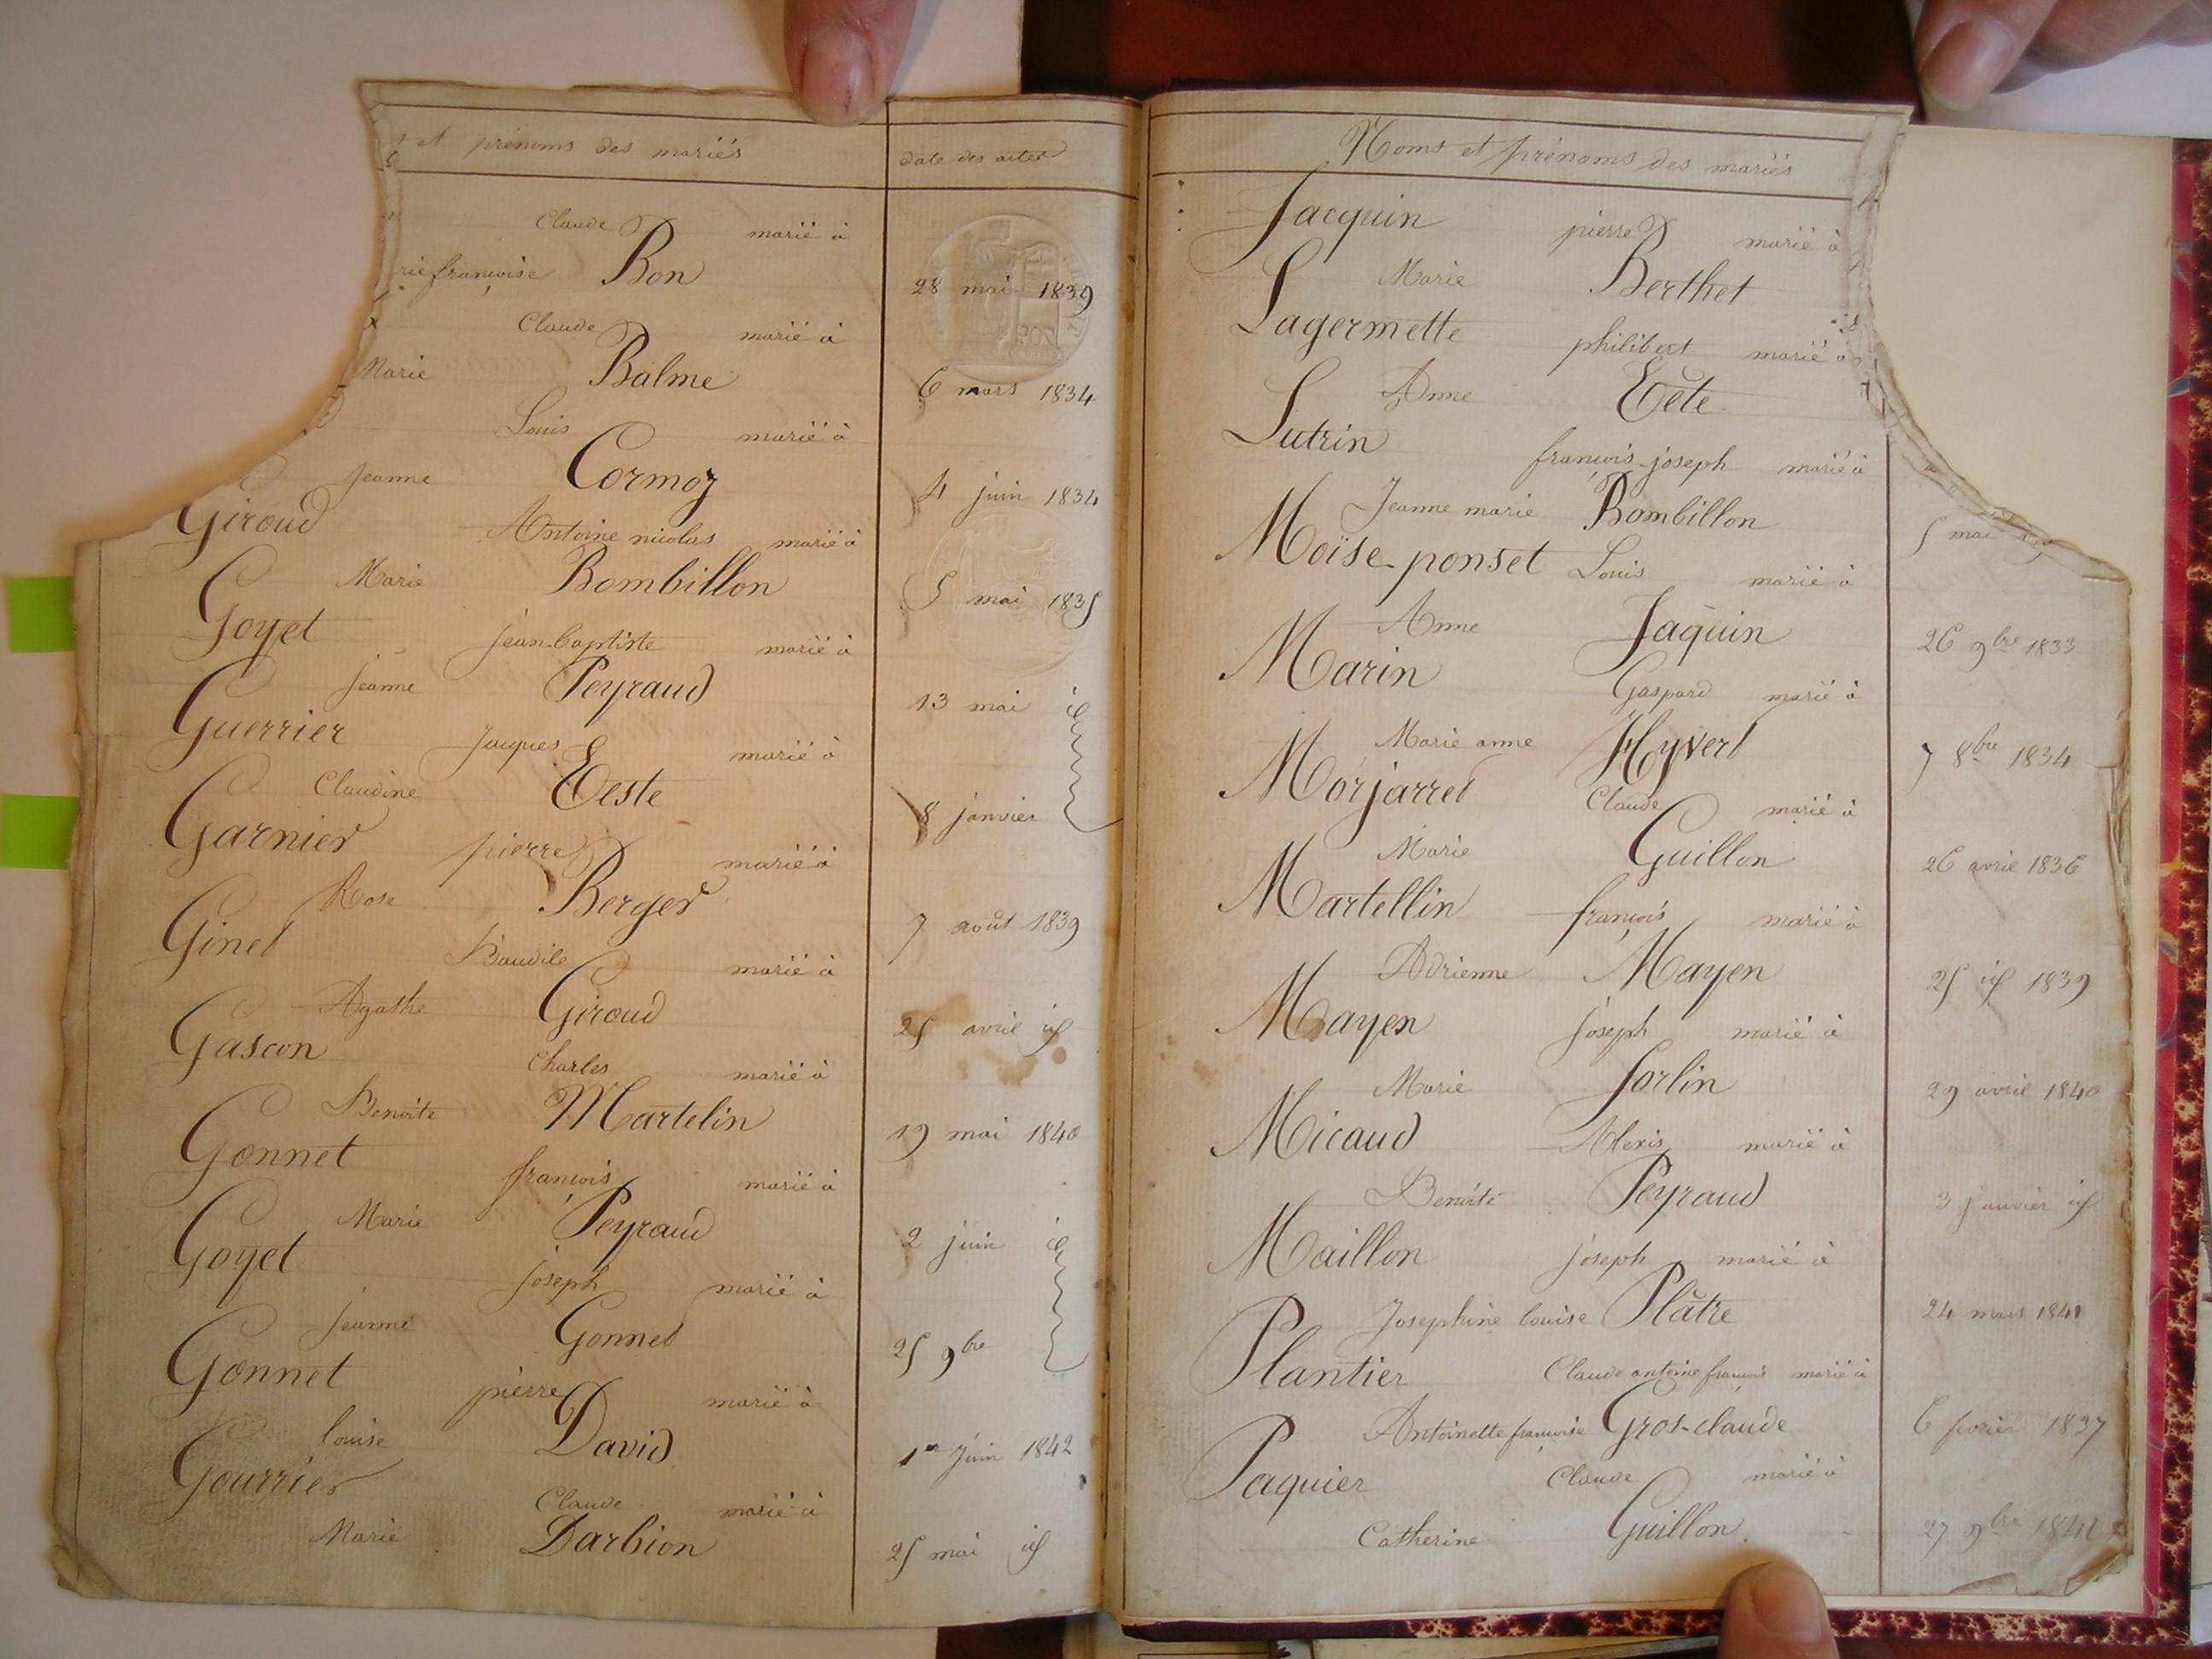 et prénoms des mariés
date des actes
Claude marié à
rie françoise Bon 28 mai 1839
Claude marié à
Marie Balme 6 mars 1834
Louis marié à
Jeanne Cormoz 4 juin 1834
Giroud Antoine nicolas marié à
Marie Bombillon 5 mai 1835
Goyet jean-baptiste marié à
Jeanne Peyraud 13 mai id
Guerrier Jacques marié à
Claudine Teste 8 janvier
Garnier pierre marié à
Rose Berger 7 août 1839
Ginet Baudile marié à
Agathe Giroud 25 avril id
Gascon Charles marié à
Benoite Martelin 19 mai 1840
Gonnet françois marié à
Marie Peyraud 2 juin id
Goyet joseph marié à
Jeanne Gonnet 25 9bre
Gonnet pierre marié à
louise David 1er Juin 1842
Gourrier Claude marié à
Marie Darbion 25 mai id
Noms et prénoms des mariés
Jacquin pierre marié à
Marie Berthet
Lagermette philibert marié à
Anne Tête
Lutrin françois-joseph marié à
Jeanne marie Bombillon 5 mai
Moïse-ponset Louis marié à
Anne Jaquin 26 9bre 1833
Marin Gaspard marié à
Marie anne Hyvert 7 8bre 1834
Morjarret Claude marié à
Marie Guillon 26 avril 1836
Martellin françois marié à
Adrienne Mayen 25 id 1839
Mayen joseph marié à
Marie Jorlin 29 avril 1840
Micaud Alexis marié à
Benoite Peyraud 3 janvier id
Maillon joseph marié à
Josephine louise Plâtre 24 mars 1841
Plantier Claude antoine françois marié à
Antoinette françoise Gros-claude 6 fevrier 1837
Paquier Claude marié à
Catherine Guillon. 27 9bre 1841